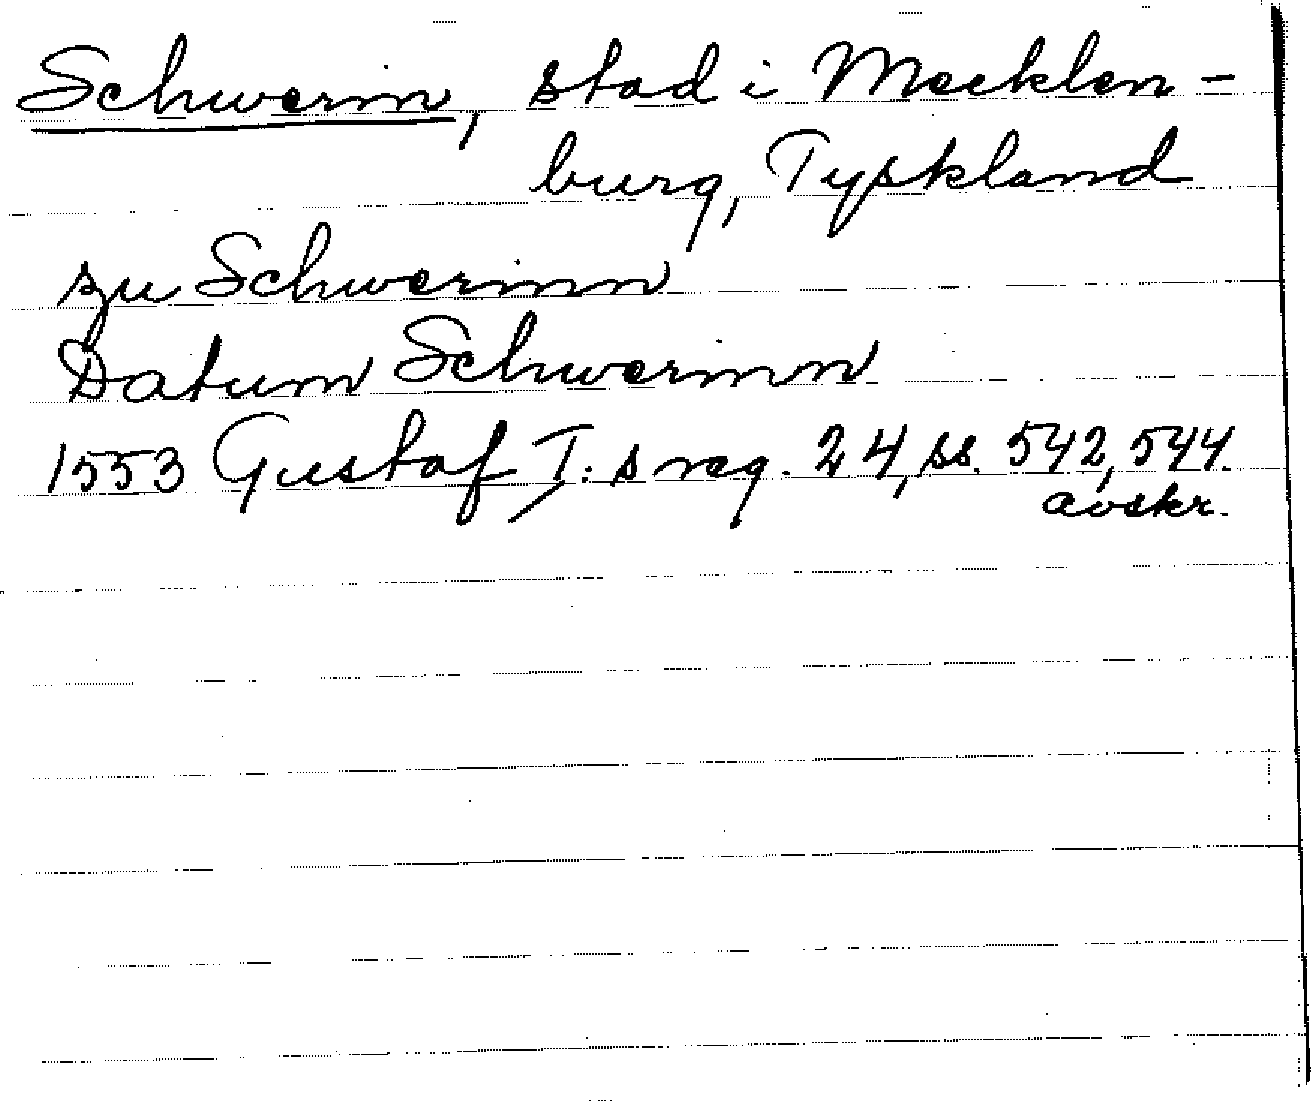 Schwerin, stad i Mecklen-
burg, Tyskland
zu Schwerinn
Datum Schwerinn
1553 Gustaf I:s reg. 24, ss. 542, 544.
avskr.